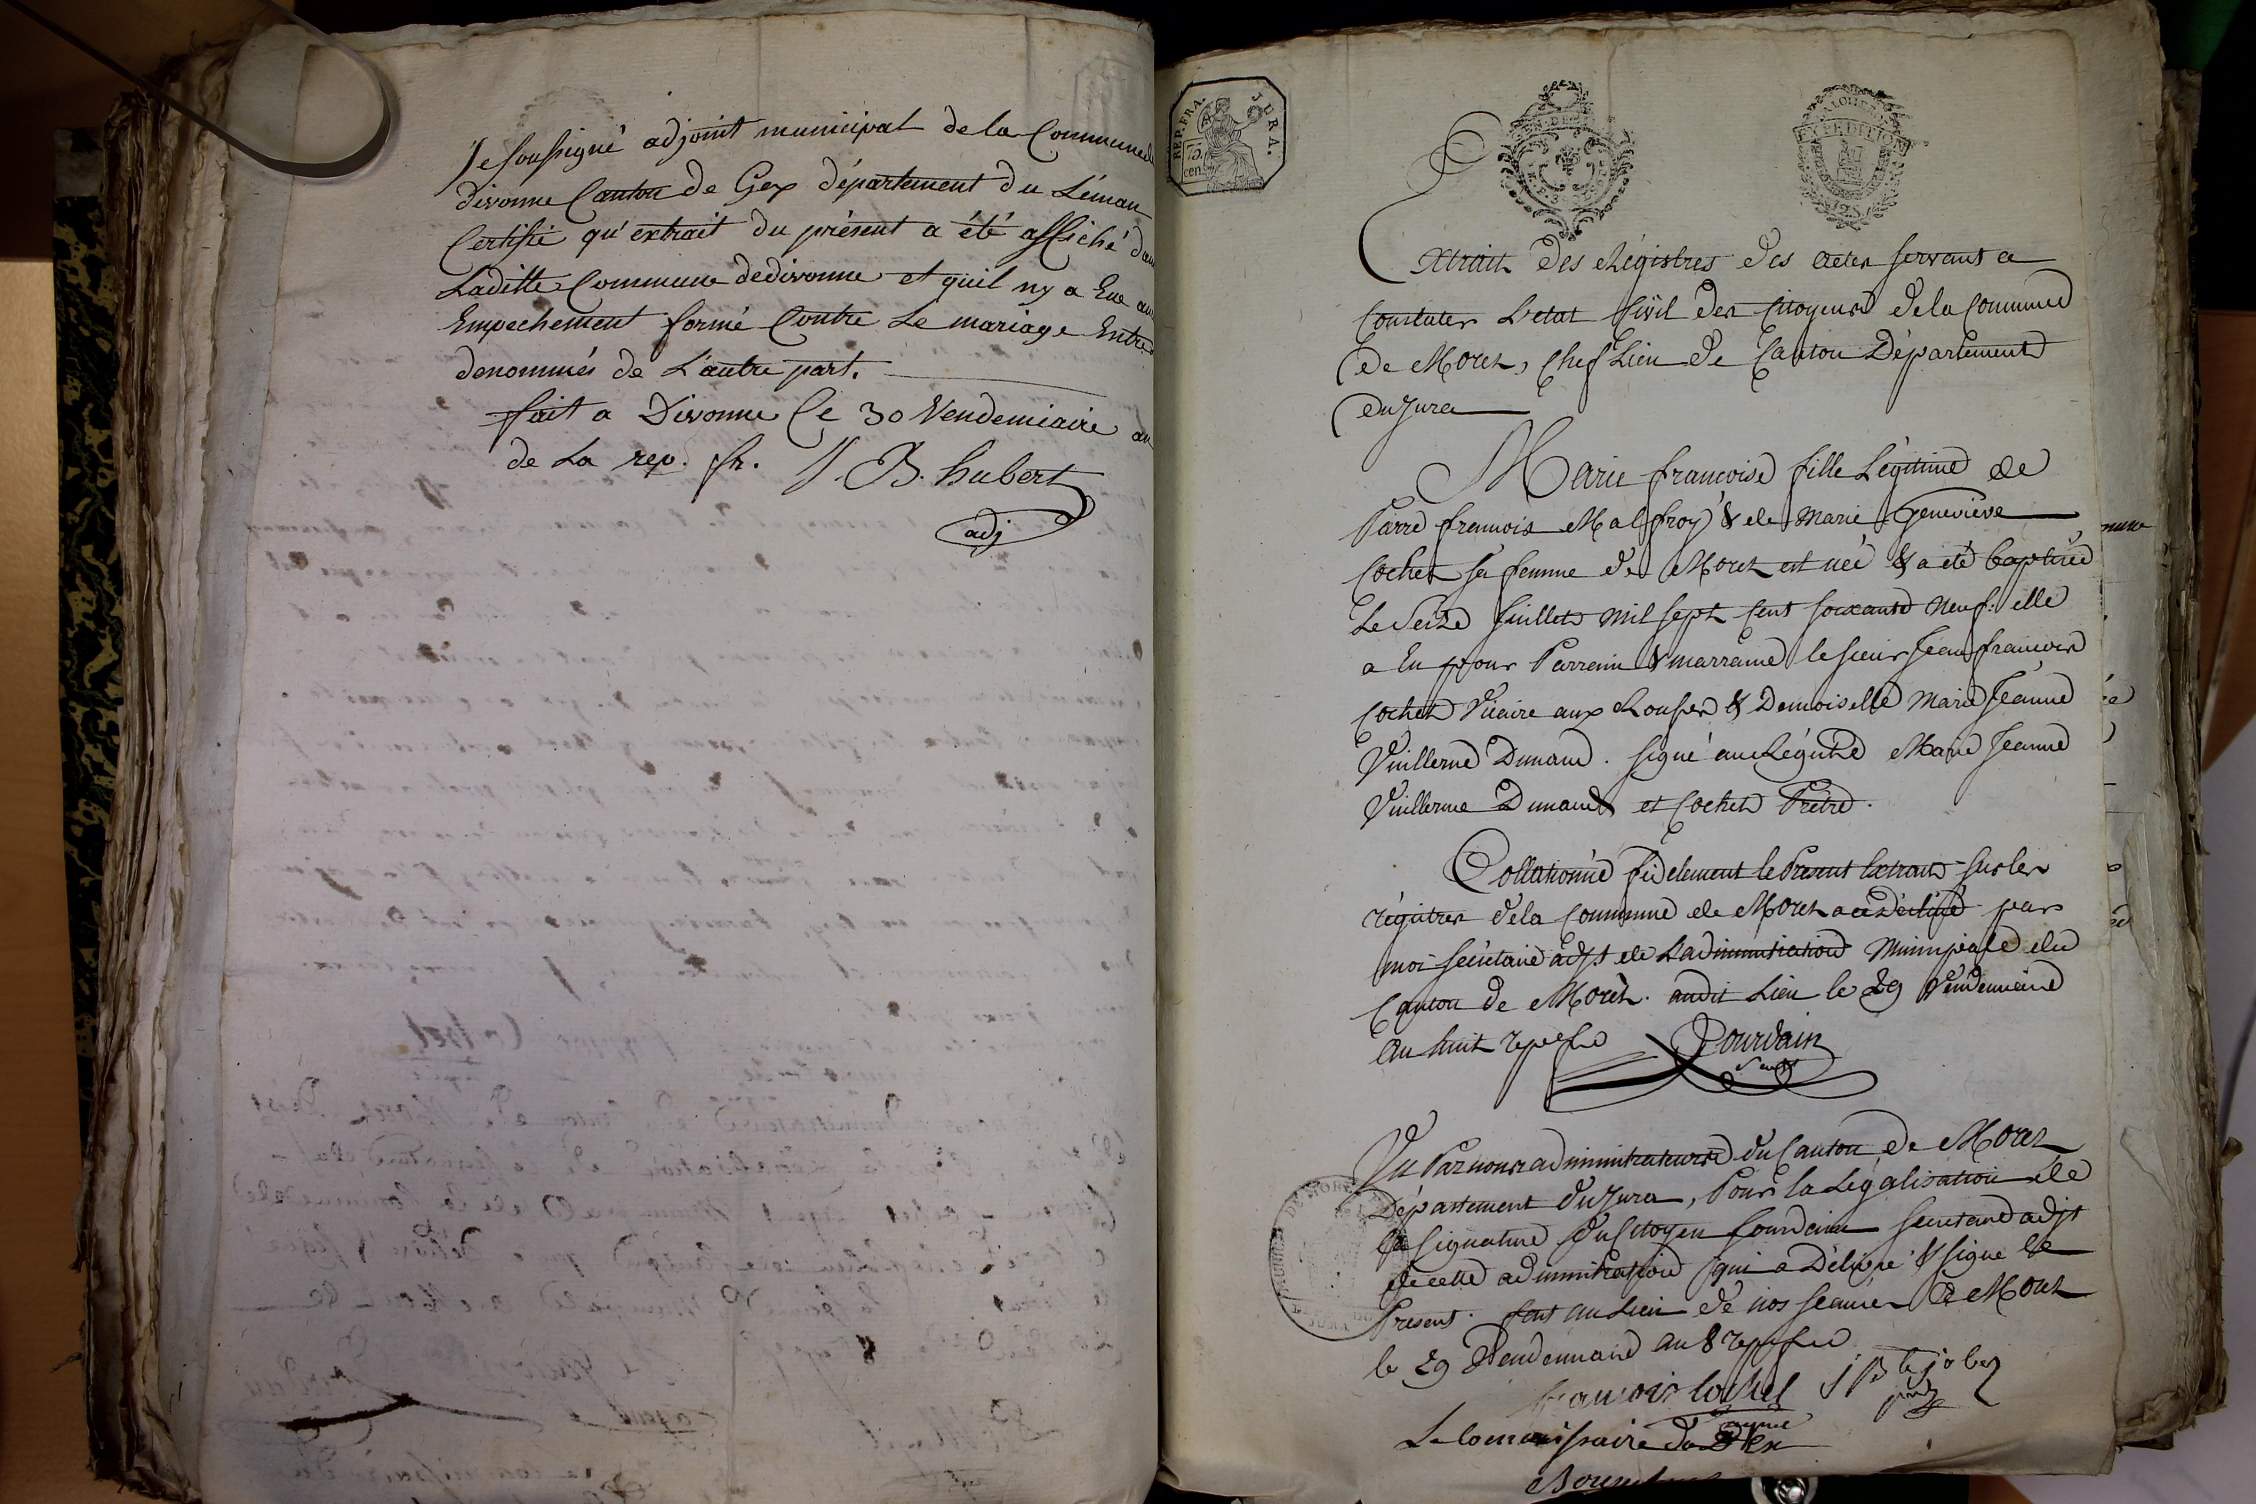 Je soussigné adjoint municipal de la Commune de
divonne Canton de Gex département du Léman
Certifie qu'extrait du présent a été affiché dan
Laditte Commune dedivonne et quil ny a Eue au
Empechement formé Contre Le mariage Entre
denommés de L'autre part.
fait a Divonne Ce 30 Vendemiaire an
de La rep. fr. J. B. hubert
adj
REP. FRA. JURA.
75. cen.
EXPEDITION
Extrait des Régistres des actes servant a
Constater L'etat Civil des Citoyens de la Commune
de Morez, Chef Lieu de Canton Département
du Jura
Marie francoise fille Légitime de
Pierre francois Malfroy & de Marie Geneviève
Cochet sa femme de Morez est née & a été baptisée
Le Seize Juillet mil sept Cent soixante Neuf: elle
a Eu pour Parrain & marraine le sieur Jean francois
Cochet Vicaire aux Rousses & Demoiselle Marie Jeanne
Vuillerme Dunand. signé au Régistre Marie Jeanne
Vuillerme Dunand et Cochet Prêtre.
Collationné fidelement le Présent Extrait sur les
régistres de la Commune de Morez par
moi secrétaire adjt de L'administration Municipale du
Canton de Morez. audit Lieu le 29 Vendemiaire
an huit
Vu Par nous administrateurs du Canton de Morez
Département du Jura, Pour la Légalisation de
la signature du Citoyen secretaire adjt
de cette administration qui a Délivré & signé le
Présent. fait au Lieu de nos séances à Morez
le 29 Vendemiaire an 8
francois Cochet
agent
Le Commissaire du